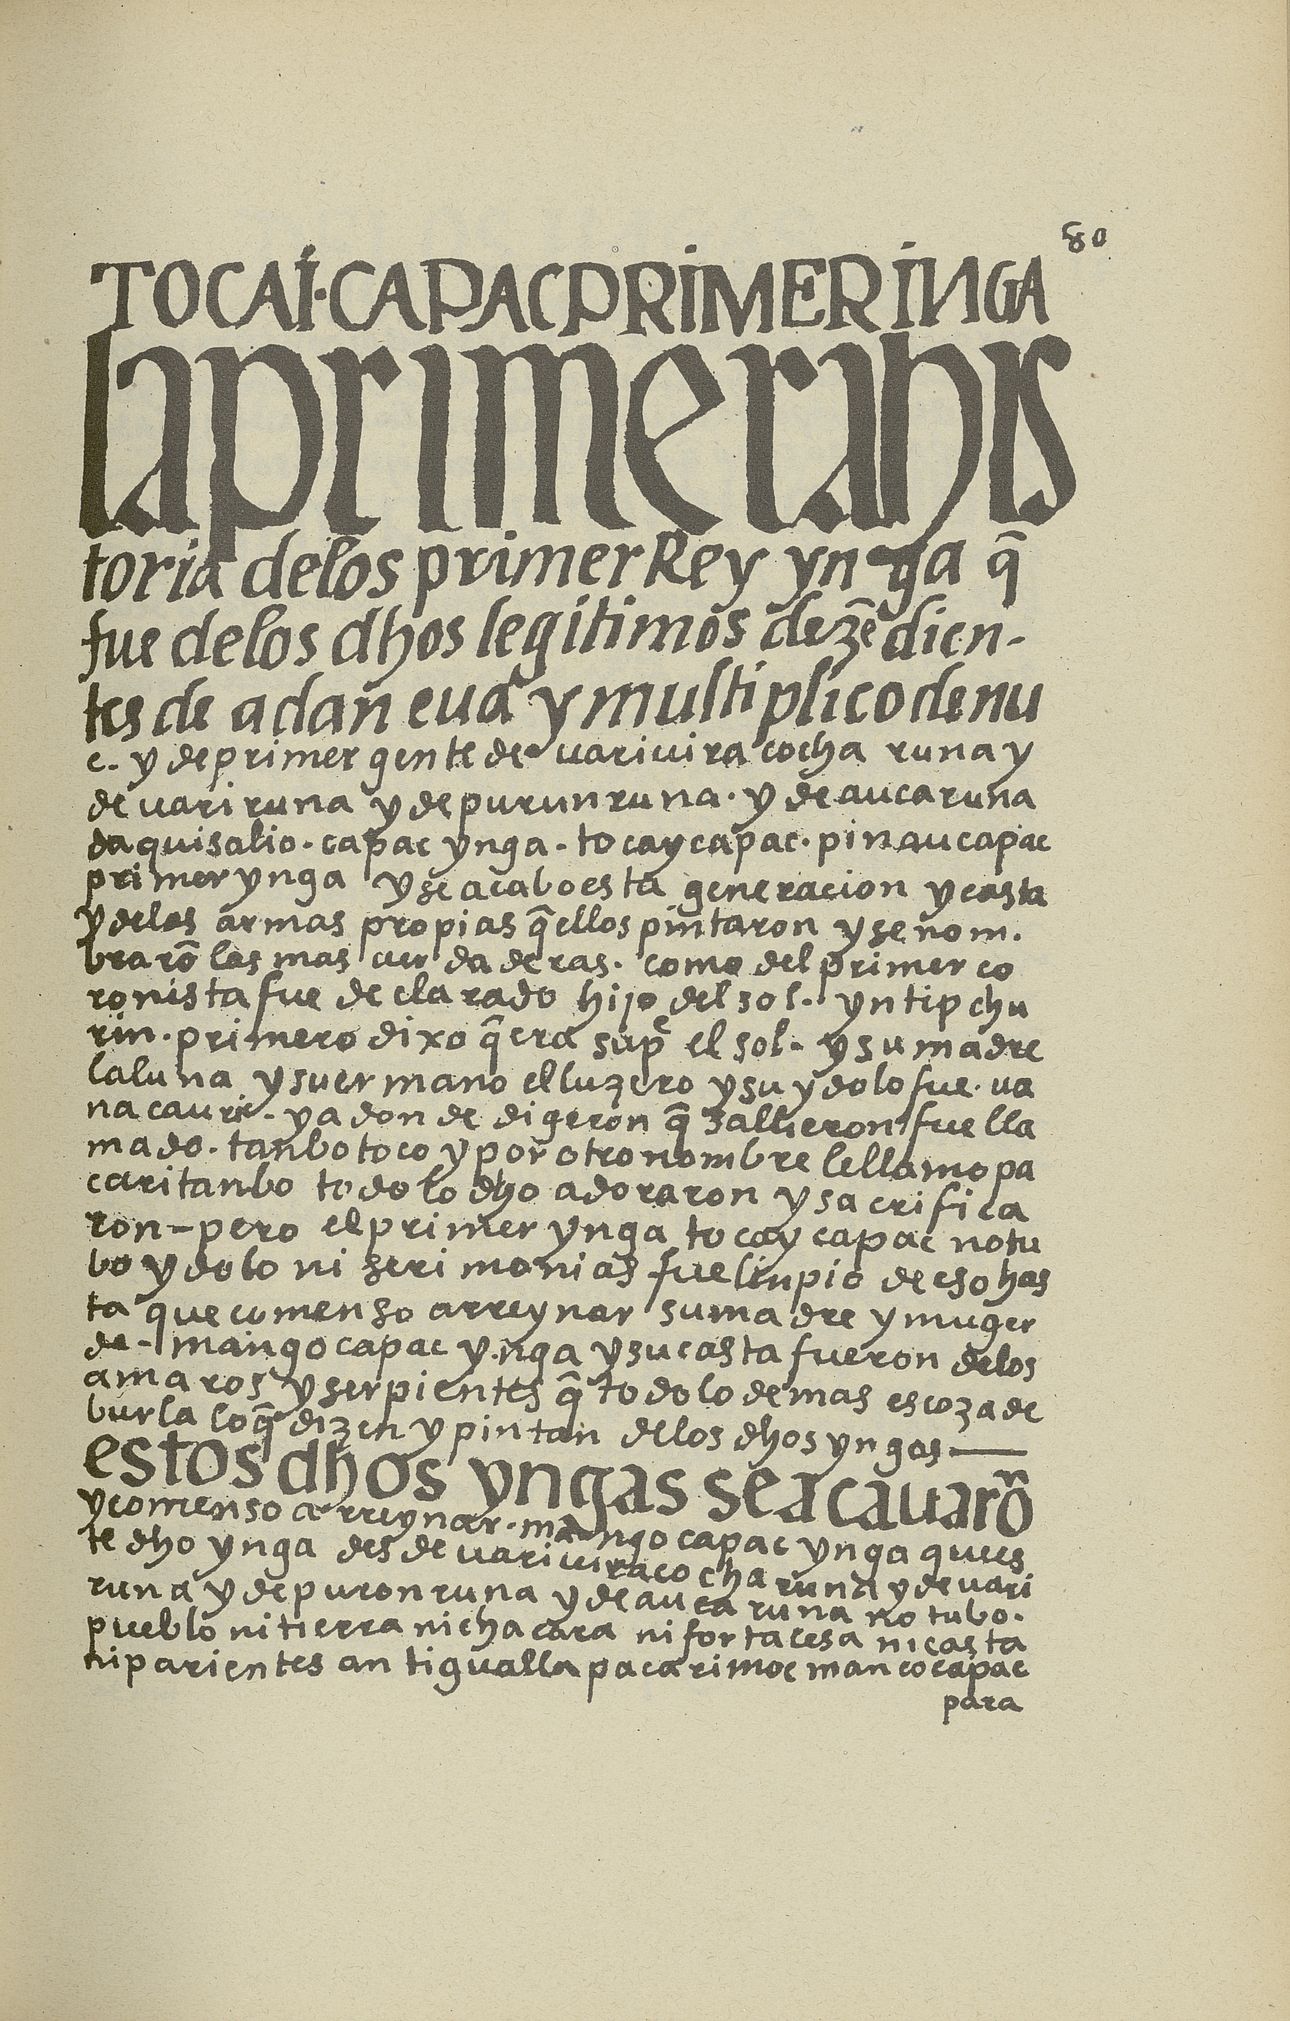 80
TOCAÍ·CAPAC PRIMER INGA
la primera his
toria delos primer Rey ynga q̃
fue delos dhos legitimos dezẽdien-
tes de adan eua y multiplico de nu
e. y de primer gente de uariuira cocha runa y
de uari runa y de purun runa. y de auca runa
da qui salio. capac ynga. tocay capac. pinau capac
primer ynga y se acabo esta generacion y casta
y delas armas propias q̃ ellos pintaron y se nom.
brarõ las mas uerdaderas. como del primer co
ronista fue declarado hijo del sol. yntip chu
rin. primero dixo q̃ era su pe el sol. y su madre
la luna y su ermano el luzero y su ydolo fue. ua
nacauri. y adonde digeron q̃ sallieron fue lla
mado. tanbotoco y por otro nombre le llamo pa
caritanbo todo lo dho adoraron y sacrifica
ron—pero el primer ynga tocay capac no tu
bo ydolo ni serimonias fue linpio de eso has
ta que comenso arreynar su madre y muger
de. mango capac ynga y su casta fueron delos
amaros y serpientes q̃ todo lo demas es coza de
burla lo q̃ dizen y pintan dellos dhos yngas—
estos dhos yngas se acauarõ
y comenso arreynar. mango capac ynga que es
te dho ynga desde uariuiracocha runa y de uari
runa y de puron runa y de auca runa no tubo.
pueblo ni tierra ni chacara ni fortalesa ni casta
ni parientes antigualla pacarimoc manco capac
para